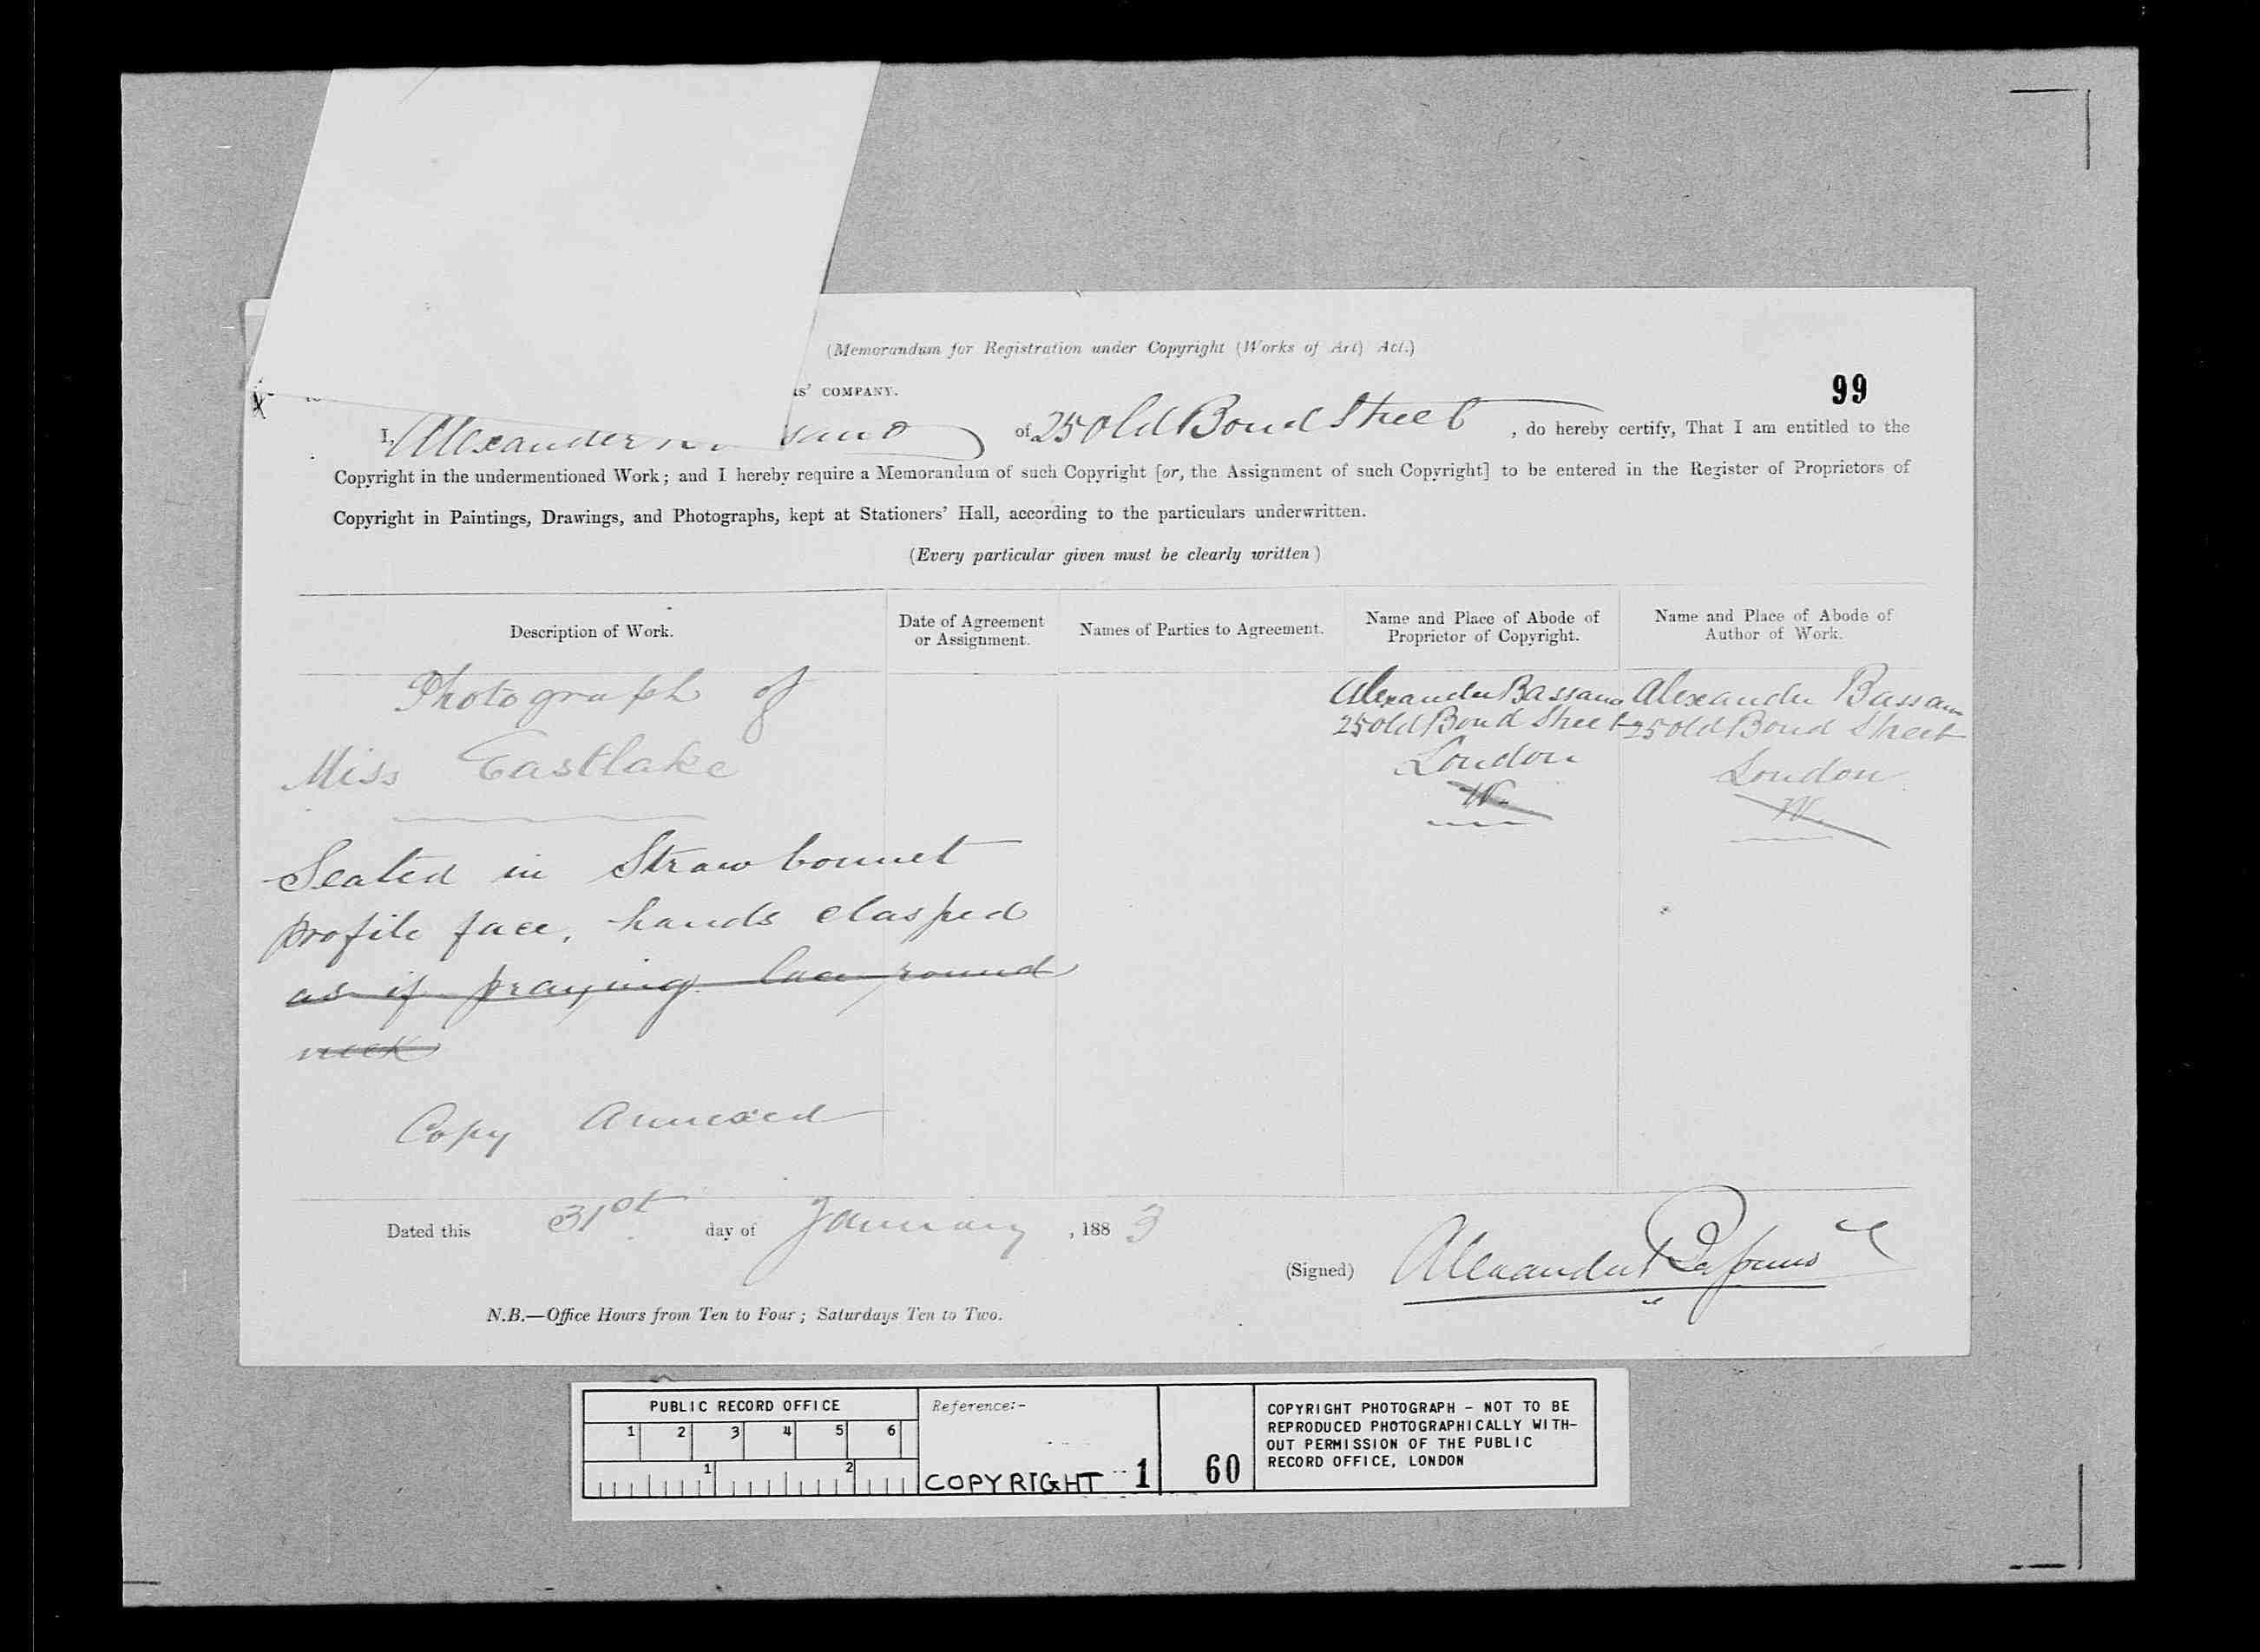 (Memorandum for Registration under Copyright (Works of Art) Act.)
RS' COMPANY.
99
I, Alexander Bassano of 25 Old Bond Street, do hereby certify, That I am entitled to the
Copyright in the undermentioned Work; and I hereby require a Memorandum of such Copyright [or, the Assignment of such Copyright] to be entered in the Register of Proprietors of
Copyright in Paintings, Drawings, and Photographs, kept at Stationers' Hall, according to the particulars underwritten.
(Every particular given must be clearly written)
Description of Work.
Date of Agreement
or Assignment.
Names of Parties to Agreement.
Name and Place of Abode of
Proprietor of Copyright.
Name and Place of Abode of
Author of Work.
Photograph of
Miss Eastlake
Seated in Straw bonnet
profile face, hands clasped
as if praying lace round
neck
Copy annexed
Alexander Bassano
25 Old Bond Street
London
W.
Alexander Bassano
25 Old Bond Street
London
W.
Dated this 31st day of January, 1883
(Signed) Alexander Bassano
N.B.—Office Hours from Ten to Four; Saturdays Ten to Two.
PUBLIC RECORD OFFICE
1 2 3 4 5 6
1 2
Reference:-
COPYRIGHT 1
60
COPYRIGHT PHOTOGRAPH - NOT TO BE
REPRODUCED PHOTOGRAPHICALLY WITH-
OUT PERMISSION OF THE PUBLIC
RECORD OFFICE, LONDON